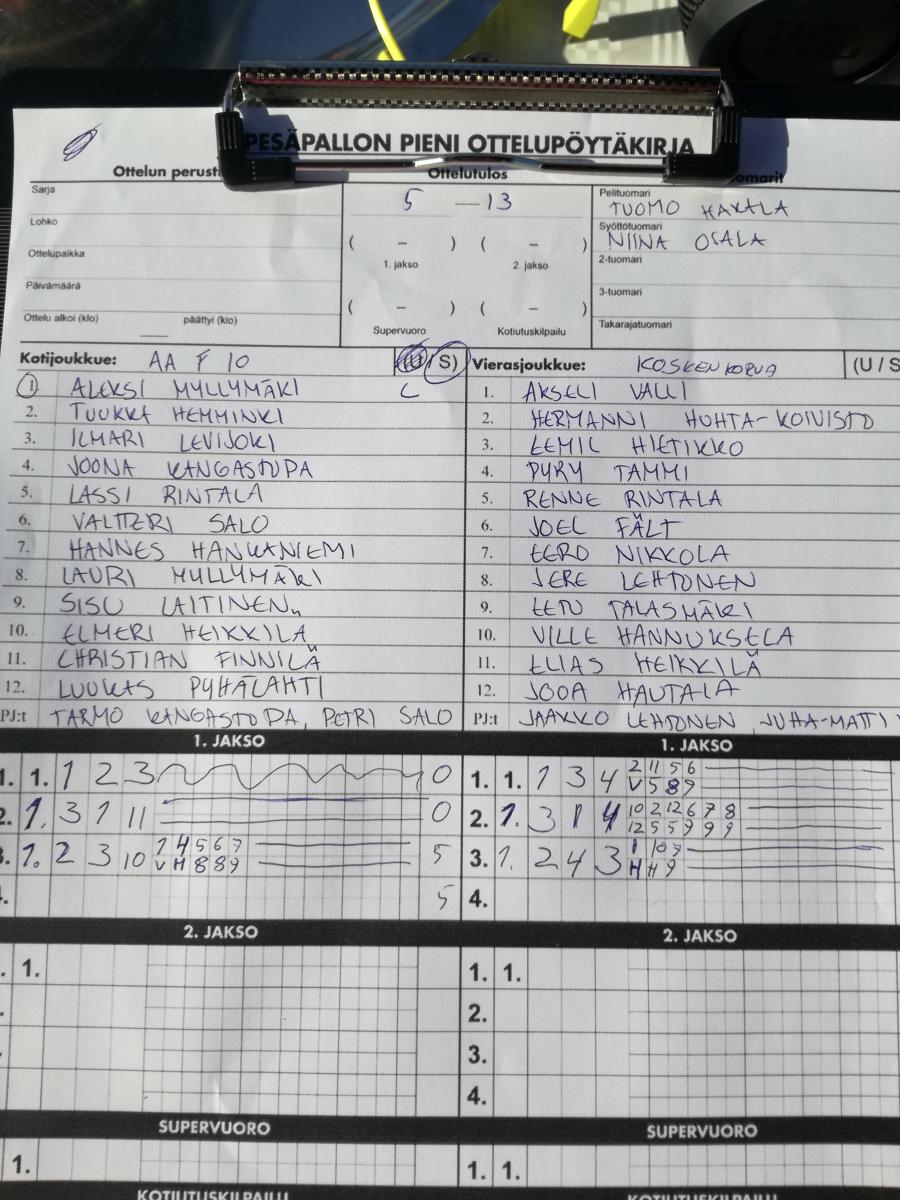 JBL
PESÄPALLON PIENI OTTELUPÖYTÄKIRJA
Ottelun perust
Ottelutulos
omarit
Sarja
5 — 13
Pelituomari
TUOMO
Lohko
Syöttötuomari
NIINA OSALA
( – ) ( – )
Ottelupaikka
2-tuomari
1. jakso 2. jakso
Päivämäärä
3-tuomari
( – ) ( – )
Ottelu alkoi (klo) päättyi (klo)
Takarajatuomari
Supervuoro Kotiutuskilpailu
Kotijoukkue: AA F 10 (U / S)
Vierasjoukkue: KOSKENKORVA (U / S
1. ALEKSI MYLLYMÄKI C
2. TUUKKA HEMMINKI
3. ILMARI LEVIJOKI
4. JOONA KANGASTUPA
5. LASSI RINTALA
6. VALTTERI SALO
7. HANNES HANKANIEMI
8. LAURI MYLLYMÄKI
9. SISU LAITINEN
10. ELMERI HEIKKILÄ
11. CHRISTIAN FINNILÄ
12. LUUKAS PYHÄLAHTI
PJ:t TARMO KANGASTUPA, PETRI SALO
1. AKSELI VALLI
2. HERMANNI HUHTA-KOIVISTO
3. EEMIL HIETIKKO
4. PYRY TAMMI
5. RENNE RINTALA
6. JOEL FÄLT
7. EERO NIKKOLA
8. JERE LEHTONEN
9. EETU TALASMÄKI
10. VILLE HANNUKSELA
11. ELIAS HEIKKILÄ
12. JOOA HAUTALA
PJ:t JAAKKO LEHTONEN, JUHA-MATTI
1. JAKSO
1. 1. 1 2 3 0
2. 1. 3 1 11 0
3. 1. 2 3 10 1 4 5 6 7 5
V H 8 8 9
. 5
1. JAKSO
1. 1. 1 3 4 2 11 5 6
V 5 8 9
2. 1. 3 1 4 10 2 12 6 7 8
12 5 5 9 9 9
3. 1. 2 4 3 1 10 7
H H 9
4.
2. JAKSO
. 1.
2. JAKSO
1. 1.
2.
3.
4.
SUPERVUORO
1.
SUPERVUORO
1. 1.
KOTIUTUSKILPAILU
KOTIUTUSKILPAILU